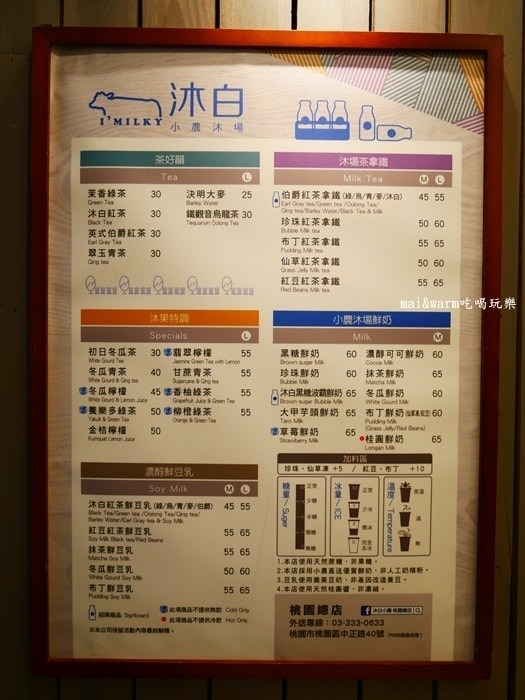 I'MILKY
沐白
小農沐場
茶好韻
Tea
L
茉香綠茶 30
Green Tea
沐白紅茶 30
Black Tea
英式伯爵紅茶 30
Earl Gray Tea
翠玉青茶 30
Qing tea
決明大麥 25
Barley Water
鐵觀音烏龍茶 30
Tieguanyin Oolong Tea
沐場茶拿鐵
Milk Tea
M L
伯爵紅茶拿鐵(綠/烏/青/麥/沐白) 45 55
Earl Gray tea/Green tea/Oolong Tea/
Qing tea/Barley Water/Black Tea & Milk
珍珠紅茶拿鐵 50 60
Bubble Milk tea
布丁紅茶拿鐵 55 65
Pudding Milk tea
仙草紅茶拿鐵 50 60
Grass Jelly Milk tea
紅豆紅茶拿鐵 55 65
Red Beans Milk tea
mai&warm吃喝玩樂
沐果特調
Specials
L L
初日冬瓜茶 30
White Gourd Tea
冬瓜青茶 40
White Gourd & Qing tea
冬瓜檸檬 45
White Gourd & Lemon Juice
養樂多綠茶 50
Yakult & Green Tea
金桔檸檬 50
Kumquat Lemon Juice
翡翠檸檬 55
Jasmine Green Tea with Lemon
甘蔗青茶 55
Sugarcane & Qing tea
香柚綠茶 55
Grapefruit Juice & Green Tea
柳橙綠茶 55
Orange & Green Tea
小農沐場鮮奶
Milk
L L
黑糖鮮奶 60
Brown Sugar Milk
珍珠鮮奶 60
Bubble Milk
沐白黑糖波霸鮮奶 65
Brown sugar Bubble Milk
大甲芋頭鮮奶 65
Taro Milk
草莓鮮奶 65
Strawberry Milk
濃醇可可鮮奶 60
Cocoa Milk
抹茶鮮奶 65
Matcha Milk
冬瓜鮮奶 60
White Gourd Milk
布丁鮮奶(仙草/紅豆) 60
Pudding Milk
(Grass Jelly/Red Beans)
桂圓鮮奶 65
Longan Milk
濃醇鮮豆乳
Soy Milk
M L
沐白紅茶鮮豆乳(綠/烏/青/麥/伯爵) 45 55
Black Tea/Green tea/Oolong Tea/Qing tea/
Barley Water/Earl Gray tea & Soy Milk
紅豆紅茶鮮豆乳 55 65
Soy Milk Black tea/Red Beans
抹茶鮮豆乳 55 65
Matcha Soy Milk
冬瓜鮮豆乳 50 60
White Gourd Soy Milk
布丁鮮豆乳 55 65
Pudding Soy Milk
加料區
珍珠·仙草凍 +5 / 紅豆·布丁 +10
糖量/Sugar
正常
少糖
半糖
微糖
無糖
冰量/ICE
正常
少冰
微冰
完全去冰
溫度/Temperature
常溫
溫
熱
1.本店使用天然蔗糖，非果糖。
2.本店採用小農直送優質鮮奶，非人工奶精粉。
3.豆乳使用義美豆奶，非基因改造黃豆。
4.本店使用天然桂圓醬，非濃縮。
招牌商品 Signboard
此項商品不提供熱飲 Cold Only
此項商品不提供冷飲 Hot Only
※本公司保留活動內容最終解釋。
桃園總店
沐白小農 桃園總店
外送專線：03-333-0633
桃園市桃園區中正路40號